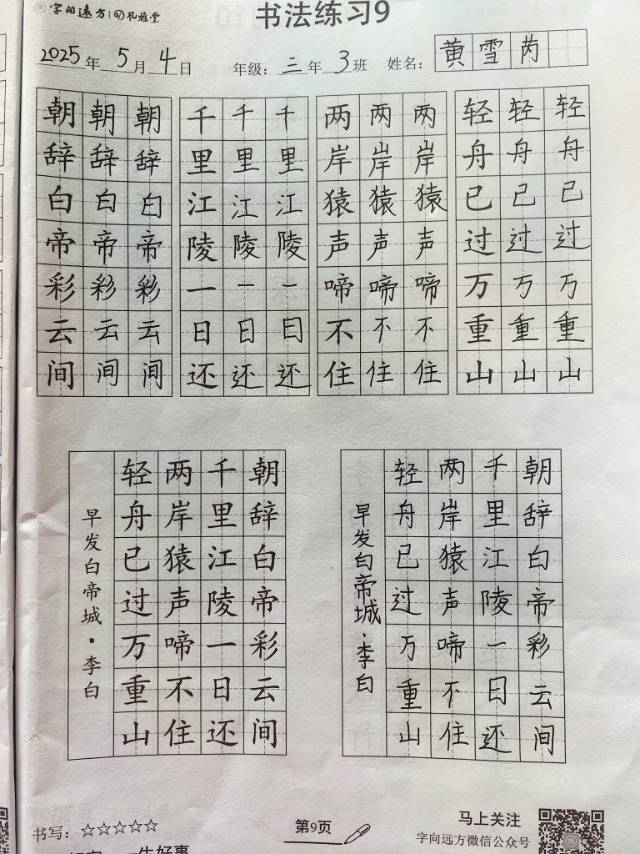 字向远方
书法练习9
2025年5月4日 年级：三年3班 姓名：黄雪芮
朝朝朝 千千千 两两两 轻轻轻
辞辞辞 里里里 岸岸岸 舟舟舟
白白白 江江江 猿猿猿 已已已
帝帝帝 陵陵陵 声声声 过过过
彩彩彩 一一一 啼啼啼 万万万
云云云 日日日 不不不 重重重
间间间 还还还 住住住 山山山
朝辞白帝彩云间
千里江陵一日还
两岸猿声啼不住
轻舟已过万重山
早发白帝城·李白
朝辞白帝彩云间
千里江陵一日还
两岸猿声啼不住
轻舟已过万重山
早发白帝城·李白
书写：☆☆☆☆☆
第9页
马上关注
字向远方微信公众号